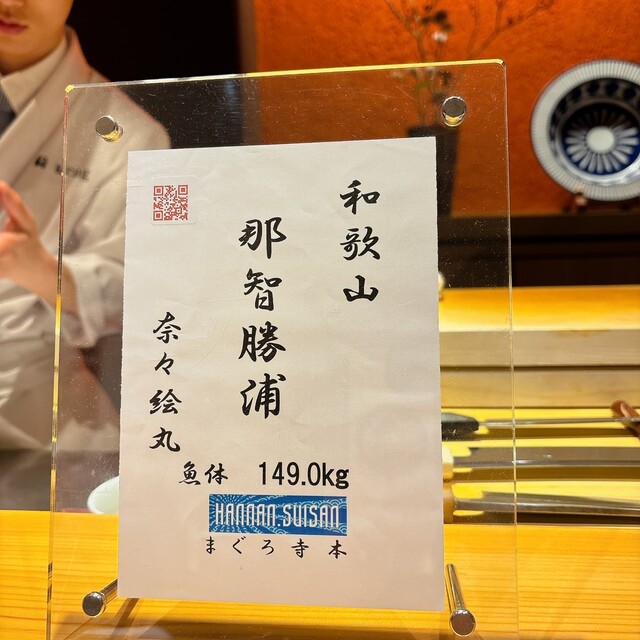 和歌山
那智勝浦
奈々絵丸
魚体 149.0kg
HANNAN.SUISAN
まぐろ寺本